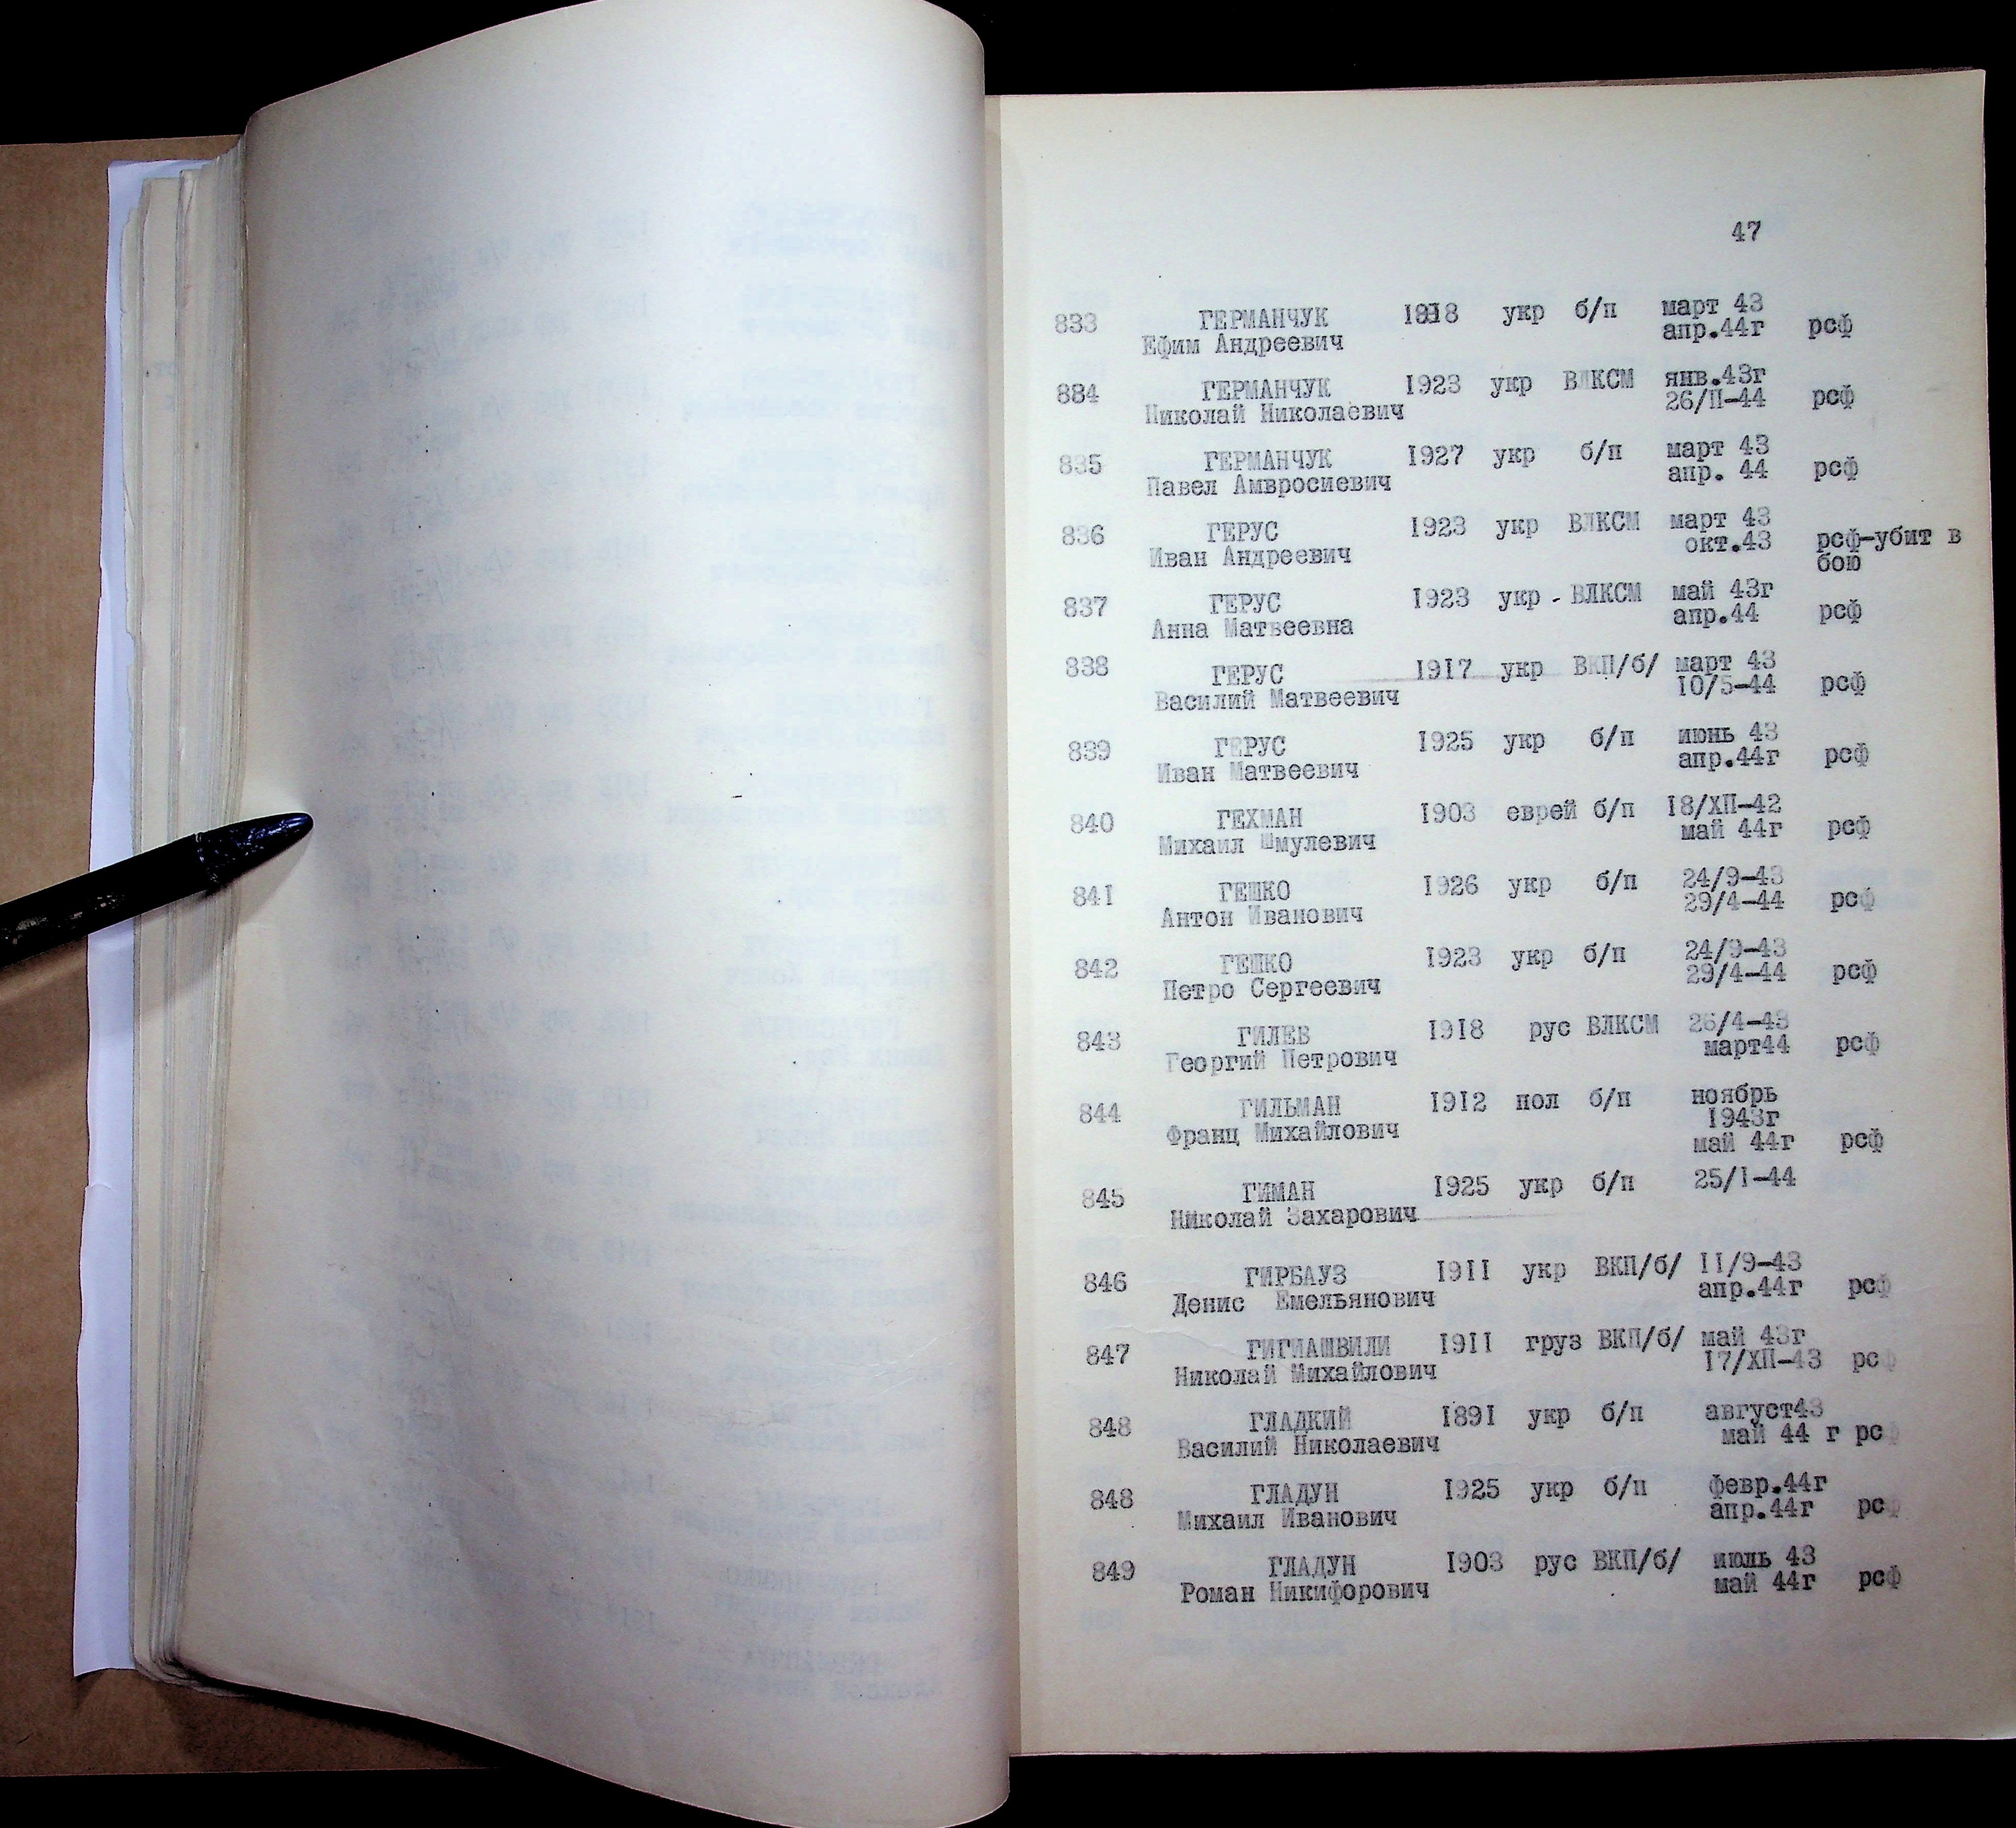 47
833 ГЕРМАНЧУК 1918 укр б/п март 43
Ефим Андреевич апр.44г рсф
884 ГЕРМАНЧУК 1923 укр ВЛКСМ янв.43г
Николай Николаевич 26/II-44 рсф
835 ГЕРМАНЧУК 1927 укр б/п март 43
Павел Амвросиевич апр. 44 рсф
836 ГЕРУС 1923 укр ВЛКСМ март 43
Иван Андреевич окт.43 рсф-убит в
бою
837 ГЕРУС 1923 укр - ВЛКСМ май 43г
Анна Матвеевна апр.44 рсф
838 ГЕРУС 1917 укр ВКП/б/ март 43
Василий Матвеевич 10/5-44 рсф
839 ГЕРУС 1925 укр б/п июнь 43
Иван Матвеевич апр.44г рсф
840 ГЕХМАН 1903 еврей б/п 18/ХП-42
Михаил Шмулевич май 44г рсф
841 ГЕШКО 1926 укр б/п 24/9-43
Антон Иванович 29/4-44 рсф
842 ГЕШКО 1923 укр б/п 24/9-43
Петро Сергеевич 29/4-44 рсф
843 ГИЛЕВ 1918 рус ВЛКСМ 26/4-43
Георгий Петрович март44 рсф
844 ГИЛЬМАН 1912 пол б/п ноябрь
1943г
Франц Михайлович май 44г рсф
845 ГИМАН 1925 укр б/п 25/I-44
Николай Захарович
846 ГИРБАУЗ 1911 укр ВКП/б/ 11/9-43
Денис Емельянович апр.44г рсф
847 ГИГИАШВИЛИ 1911 груз ВКП/б/ май 43г
Николай Михайлович 17/ХП-43 рсф
848 ГЛАДКИЙ 1891 укр б/п август43
Василий Николаевич май 44 г рсф
848 ГЛАДУН 1925 укр б/п февр.44г
Михаил Иванович апр.44г рсф
849 ГЛАДУН 1903 рус ВКП/б/ июль 43
Роман Никифорович май 44г рсф